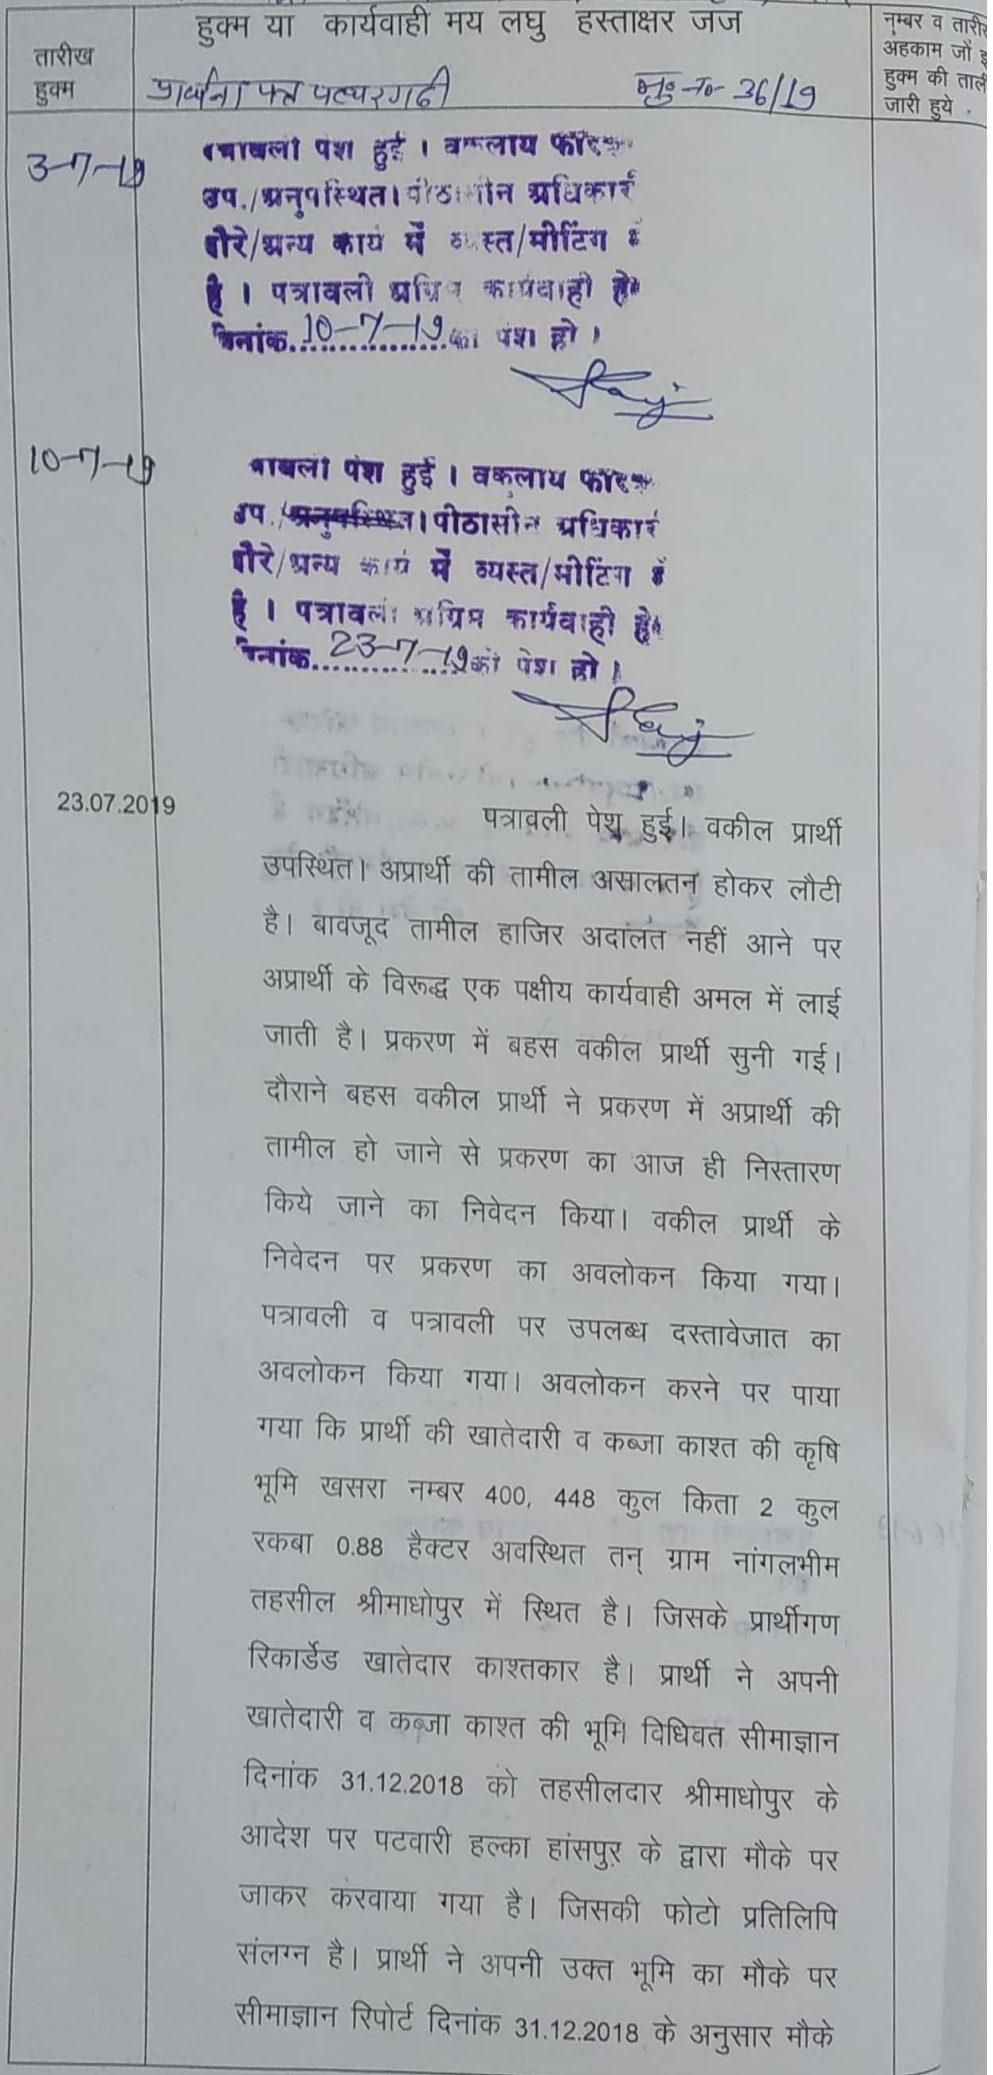 हुक्म या कार्यवाही मय लघु हस्ताक्षर जज
तारीख
हुक्म
नम्बर व तारीख
अहकाम जो इ
हुक्म की ताली
जारी हुये
प्रार्थना पत्र पत्थरगढी
मु0 न0- 36/19
3-7-19
पेश हुई । वकलाय
उप./अनुपस्थित। पीठासीन अधिकारी
दौरे/अन्य कार्य में व्यस्त/मीटिंग
है । पत्रावली अग्रिम कार्यवाही हेतु
दिनांक 10-7-19 को पेश हो ।
10-7-19
पेश हुई । वकलाय
उप./अनुपस्थित। पीठासीन अधिकारी
दौरे/अन्य कार्य में व्यस्त/मीटिंग
है । पत्रावली अग्रिम कार्यवाही हेतु
दिनांक 23-7-19 को पेश हो ।
23.07.2019
पत्रावली पेश हुई। वकील प्रार्थी
उपस्थित। अप्रार्थी की तामील असालतन होकर लौटी
है। बावजूद तामील हाजिर अदालत नहीं आने पर
अप्रार्थी के विरूद्ध एक पक्षीय कार्यवाही अमल में लाई
जाती है। प्रकरण में बहस वकील प्रार्थी सुनी गई।
दौराने बहस वकील प्रार्थी ने प्रकरण में अप्रार्थी की
तामील हो जाने से प्रकरण का आज ही निस्तारण
किये जाने का निवेदन किया। वकील प्रार्थी के
निवेदन पर प्रकरण का अवलोकन किया गया।
पत्रावली व पत्रावली पर उपलब्ध दस्तावेजात का
अवलोकन किया गया। अवलोकन करने पर पाया
गया कि प्रार्थी की खातेदारी व कब्जा काश्त की कृषि
भूमि खसरा नम्बर 400, 448 कुल किता 2 कुल
रकबा 0.88 हैक्टर अवस्थित तन् ग्राम नांगलभीम
तहसील श्रीमाधोपुर में स्थित है। जिसके प्रार्थीगण
रिकार्डेड खातेदार काश्तकार है। प्रार्थी ने अपनी
खातेदारी व कब्जा काश्त की भूमि विधिवत सीमाज्ञान
दिनांक 31.12.2018 को तहसीलदार श्रीमाधोपुर के
आदेश पर पटवारी हल्का हांसपुर के द्वारा मौके पर
जाकर करवाया गया है। जिसकी फोटो प्रतिलिपि
संलग्न है। प्रार्थी ने अपनी उक्त भूमि का मौके पर
सीमाज्ञान रिपोर्ट दिनांक 31.12.2018 के अनुसार मौके